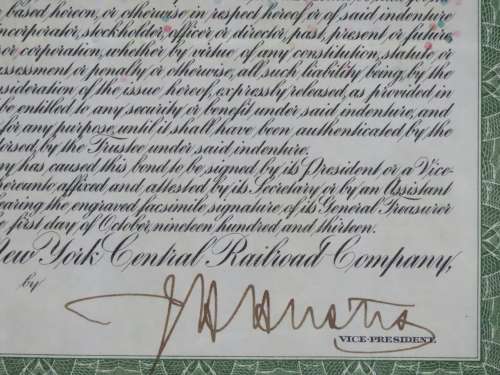 based hereon, or otherwise in respect hereof or of said indenture
incorporator, stockholder, officer or director, past, present or future
or corporation, whether by virtue of any constitution, statute or
assessment or penalty or otherwise, all such liability being, by the
consideration of the issue hereof, expressly released, as provided in
be entitled to any security or benefit under said indenture, and
for any purpose, until it shall have been authenticated by the
dorsed, by the Trustee under said indenture.
ny has caused this bond to be signed by its President or a Vice-
hereunto affixed and attested by its Secretary or by an Assistant
earing the engraved facsimile signature, of its General Treasurer
e first day of October, nineteen hundred, and thirteen.
New York Central Railroad Company,
by
VICE-PRESIDENT.